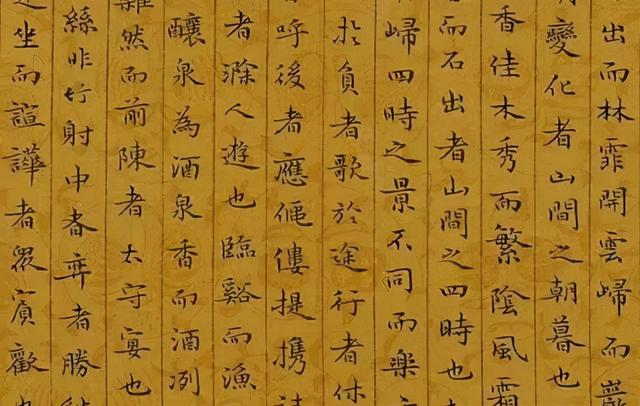 出而林霏開雲歸而巖
變化者山間之朝暮也
香佳木秀而繁陰風霜
而石出者山間之四時也
歸四時之景不同而樂
扵負者歌於途行者休
者呼後者應傴僂提携
者滁人遊也臨谿而漁
釀泉為酒泉香而酒冽
雜然而前陳者太守宴也
絲非竹射中者弈者勝
坐而諠譁者衆賓歡也